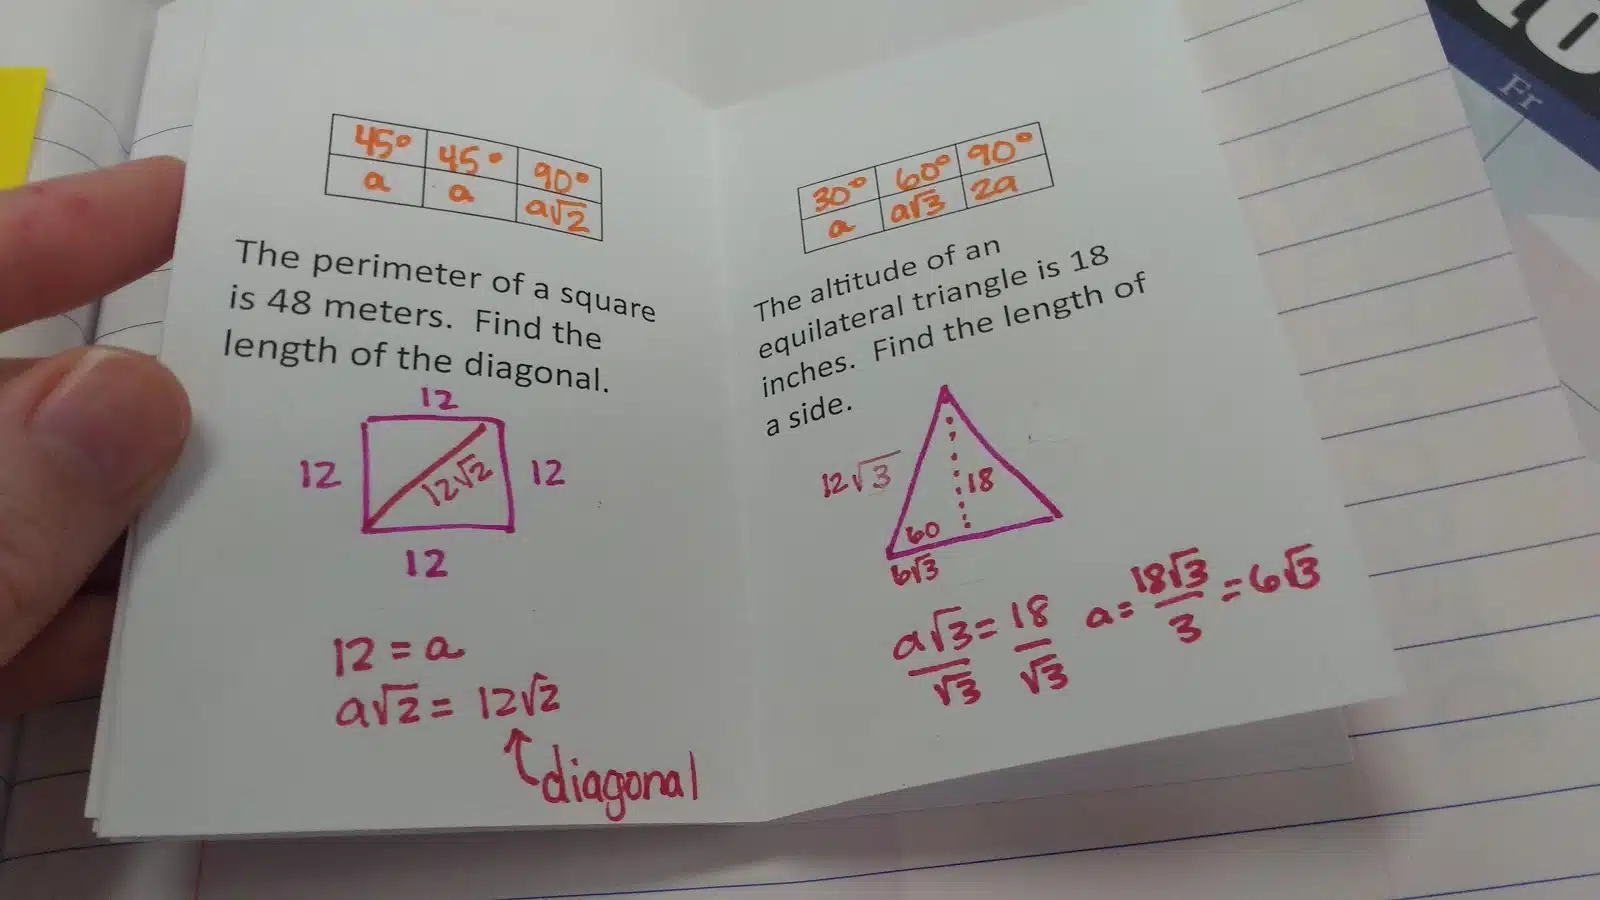 45° 45° 90°
a a a√2
The perimeter of a square
is 48 meters. Find the
length of the diagonal.
12
12 12√2 12
12
12 = a
a√2 = 12√2
diagonal
30° 60° 90°
a a√3 2a
The altitude of an
equilateral triangle is 18
inches. Find the length of
a side.
12√3 18
60
6√3
a√3/√3 = 18/√3 a = 18√3/3 = 6√3
10
Fr